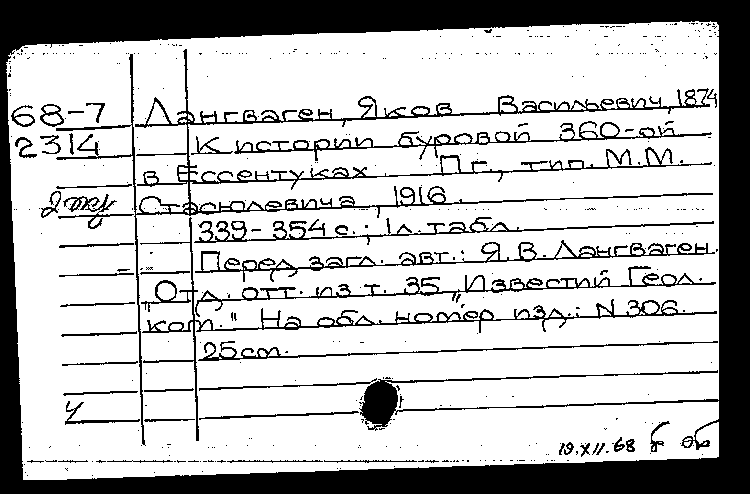 68-7 Лангваген, Яков Васильевич, 1874
2314 К истории буровой 360-ой
в Ессентуках Пг., тип. М.М.
2 Стасюлевича, 1916.
339-354 с.; 1 л. табл.
Перед загл. авт.: Я. В. Лангваген.
"Отд. отт. из т. 35 "Известий Геол.
ком." На обл. номер изд.: N 306.
25 см.
19.XII.68